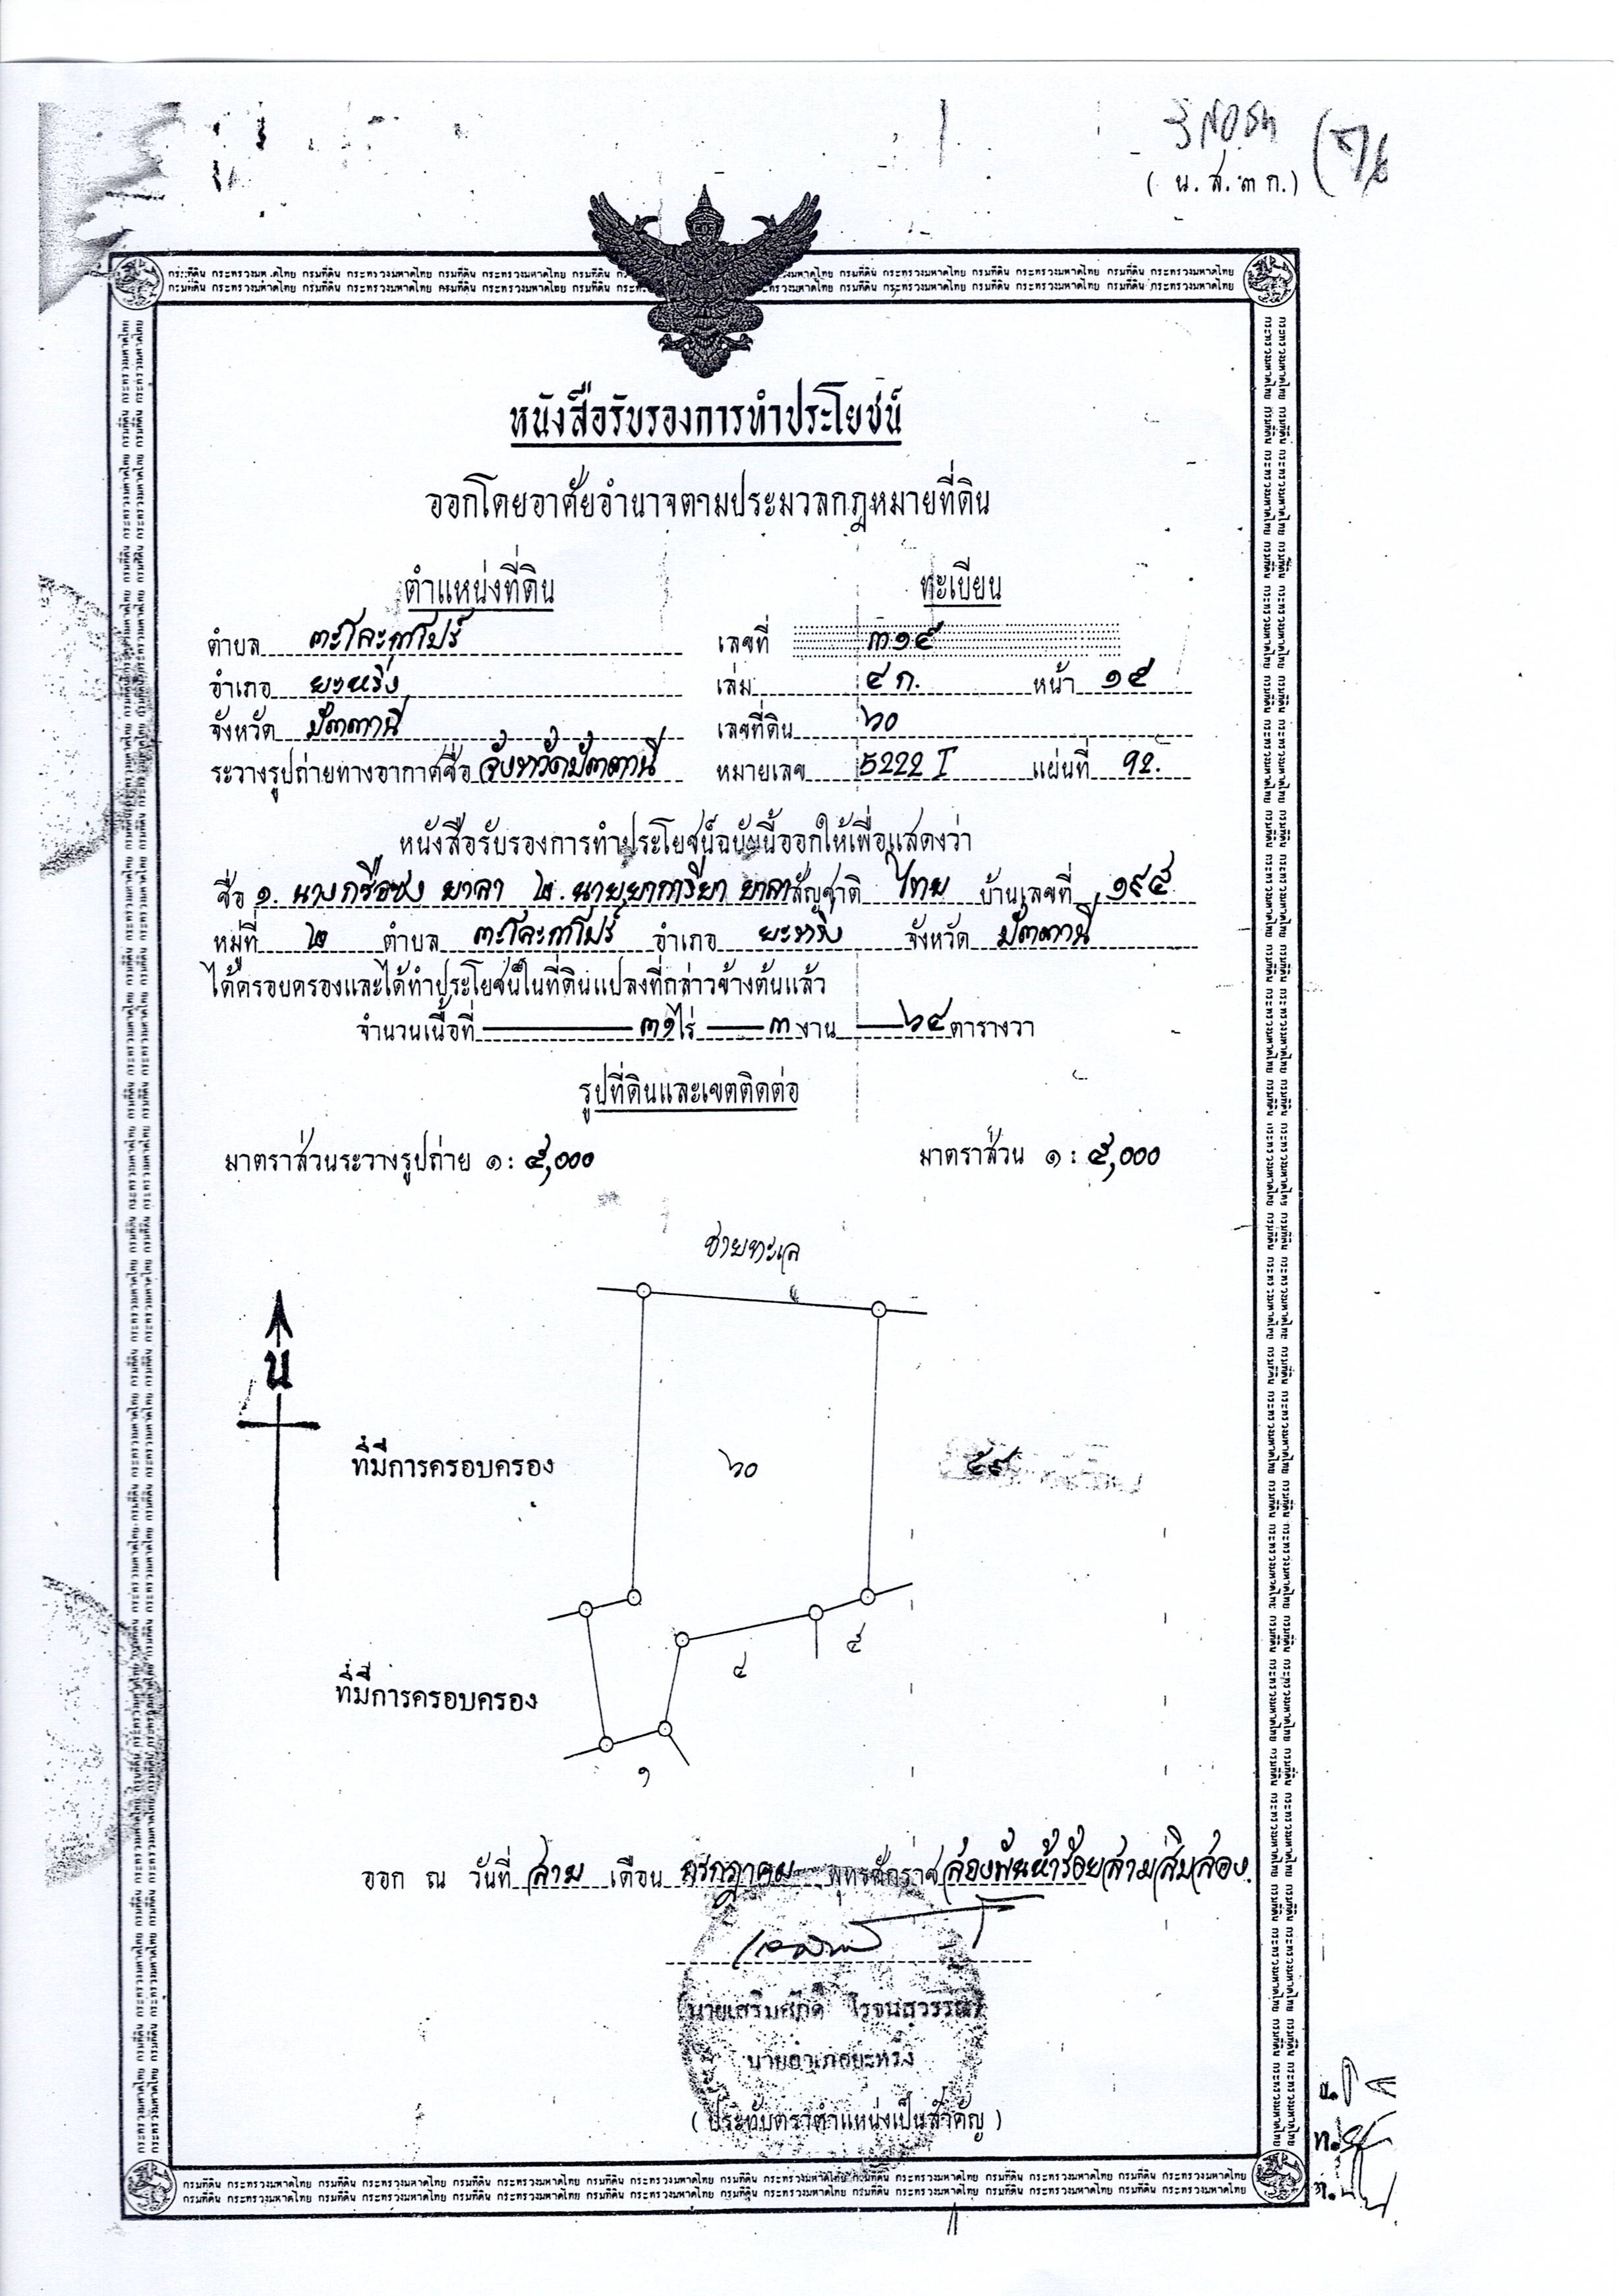 ( น.ส.๓ ก.)
กรมที่ดิน กระทรวงมหาดไทย กรมที่ดิน กระทรวงมหาดไทย กรมที่ดิน กระทรวงมหาดไทย
หนังสือรับรองการทำประโยชน์
ออกโดยอาศัยอำนาจตามประมวลกฎหมายที่ดิน
ตำแหน่งที่ดิน ทะเบียน
ตำบล ตะโละกาโปร์ เลขที่ ๓๑๕
อำเภอ ยะหริ่ง เล่ม ๔ ก. หน้า ๑๕
จังหวัด ปัตตานี เลขที่ดิน ๖๐
ระวางรูปถ่ายทางอากาศชื่อ จังหวัดปัตตานี หมายเลข 5222 I แผ่นที่ 92
หนังสือรับรองการทำประโยชน์ฉบับนี้ออกให้เพื่อแสดงว่า
ชื่อ ๑. นางกรือซง ยาลา ๒. นายยาการียา ยาลา สัญชาติ ไทย บ้านเลขที่ ๑๙๔
หมู่ที่ ๒ ตำบล ตะโละกาโปร์ อำเภอ ยะหริ่ง จังหวัด ปัตตานี
ได้ครอบครองและได้ทำประโยชน์ในที่ดินแปลงที่กล่าวข้างต้นแล้ว
จำนวนเนื้อที่ ๓๑ ไร่ ๓ งาน ๖๔ ตารางวา
รูปที่ดินและเขตติดต่อ
มาตราส่วนระวางรูปถ่าย ๑ : ๕,๐๐๐ มาตราส่วน ๑ : ๕,๐๐๐
ชายทะเล
น
ที่มีการครอบครอง ๖๐ ๕๙
๕
๔
ที่มีการครอบครอง
๑
ออก ณ วันที่ สาม เดือน กรกฎาคม พุทธศักราช สองพันห้าร้อยสามสิบสอง
(นายเสริมศักดิ์ โรจนสุวรรณ)
นายอำเภอยะหริ่ง
( ประทับตราตำแหน่งเป็นสำคัญ )
กรมที่ดิน กระทรวงมหาดไทย กรมที่ดิน กระทรวงมหาดไทย กรมที่ดิน กระทรวงมหาดไทย